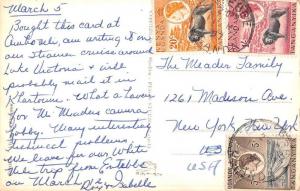 March 5
Bought this card at
Amboseli, am writing it on
our steamer cruise around
Lake Victoria & will
probably mail it in
Khartoum. What a haven
for Mr Meaders camera
hobby. Many interesting
technical problems.
We leave for our White
Nile trip from Entebbe
on March 9th
Roy & Isabelle
The Meader Family
1261 Madison Ave.
New York, New York
USA